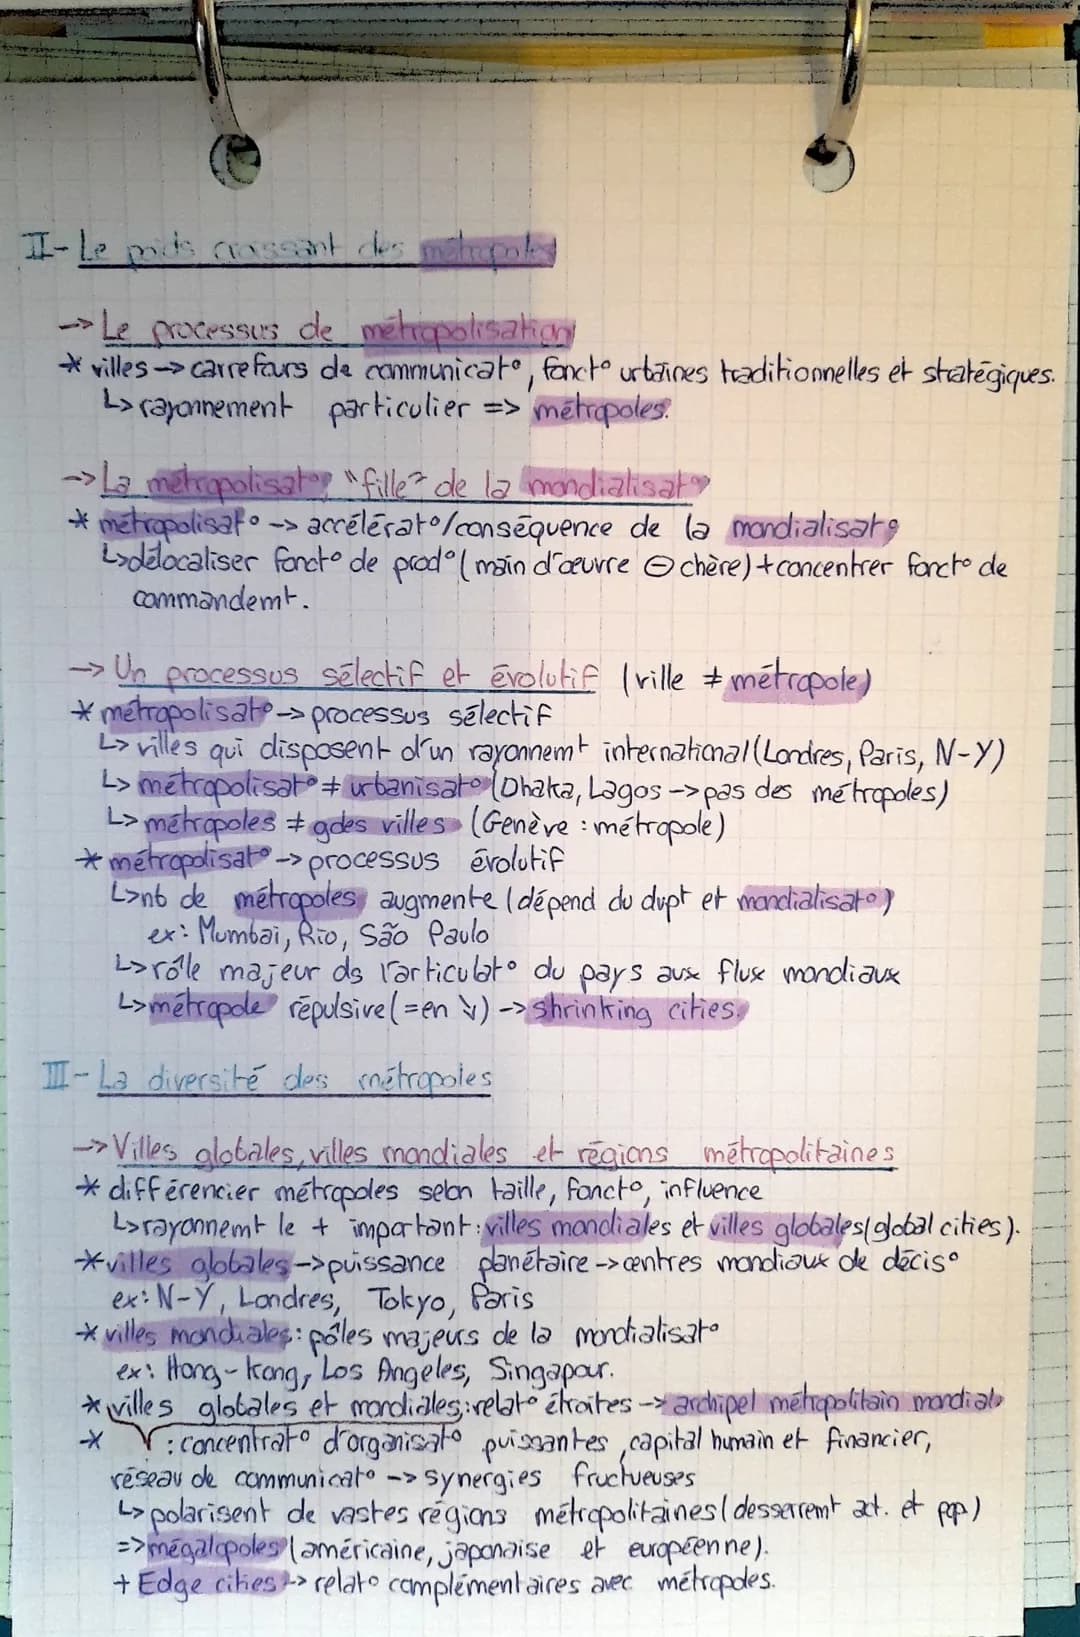 II- Le poids croissant des métropoles
-> Le processus de métropolisation
* villes -> carrefours de communicat°, fonct° urbaines traditionnelles et stratégiques.
↳ rayonnement particulier => métropoles.
-> La métropolisat°, "fille" de la mondialisat°
* métropolisat° -> accélérat°/conséquence de la mondialisat°
↳ délocaliser fonct° de prod° (main d'œuvre ⊖ chère) + concentrer fonct° de
commandemt.
-> Un processus sélectif et évolutif (ville ≠ métropole)
* métropolisat° -> processus sélectif
↳ villes qui disposent d'un rayonnemt international (Londres, Paris, N-Y)
↳ métropolisat° ≠ urbanisat° (Dhaka, Lagos -> pas des métropoles)
↳ métropoles ≠ gdes villes (Genève : métropole)
* métropolisat° -> processus évolutif
↳ nb de métropoles augmente (dépend du dvpt et mondialisat°)
ex: Mumbai, Rio, São Paulo
↳ rôle majeur ds l'articulat° du pays aux flux mondiaux
↳ métropole répulsive (= en ↘) -> shrinking cities.
III- La diversité des métropoles
-> Villes globales, villes mondiales et régions métropolitaines
* différencier métropoles selon taille, fonct°, influence
↳ rayonnemt le + important : villes mondiales et villes globales (global cities).
* villes globales -> puissance planétaire -> centres mondiaux de décis°
ex: N-Y, Londres, Tokyo, Paris
* villes mondiales : pôles majeurs de la mondialisat°
ex: Hong-Kong, Los Angeles, Singapour.
* villes globales et mondiales : relat° étroites -> archipel métropolitain mondial
* : concentrat° d'organisat° puissantes, capital humain et financier,
réseau de communicat° -> synergies fructueuses
↳ polarisent de vastes régions métropolitaines (desserremt act. et pop.)
=> mégalopoles (américaine, japonaise et européenne).
+ Edge cities -> relat° complémentaires avec métropoles.